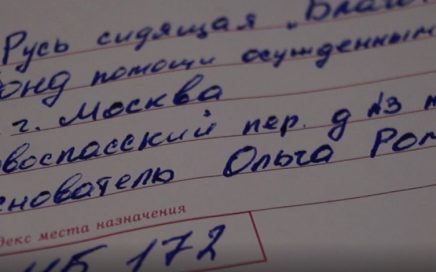 Русь сидящая „Благо
онд помощи осужденным
г. Москва
воспасский пер. д №3
снователь Ольга Ром
декс места назначения
172